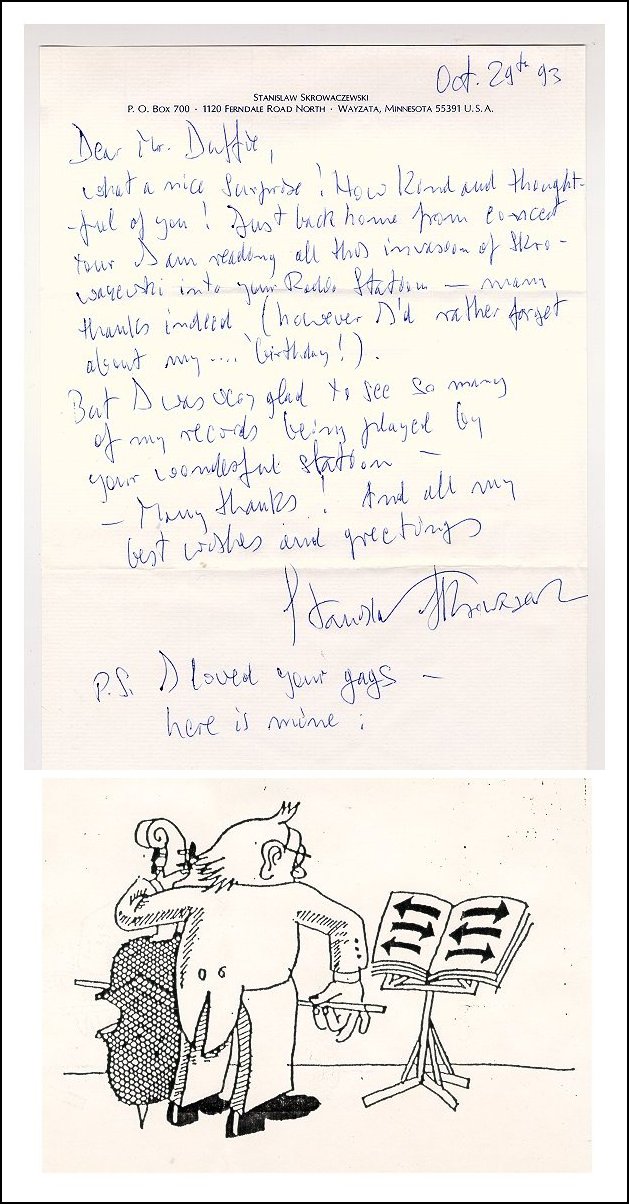 Oct. 29th 93
STANISLAW SKROWACZEWSKI
P. O. BOX 700 · 1120 FERNDALE ROAD NORTH · WAYZATA, MINNESOTA 55391 U. S. A.
Dear Mr. Duffie,
what a nice surprise! How kind and thought-
-ful of you! Just back home from concert
tour I am reading all this invasion of Skro-
waczewski into your Radio Station — many
thanks indeed (however I'd rather forget
about my .... 'birthday!).
But I was very glad to see so many
of my records being played by
your wonderful station —
— Many thanks! And all my
best wishes and greetings
Stanislaw Skrowaczewski
P.S. I loved your gags —
here is mine: